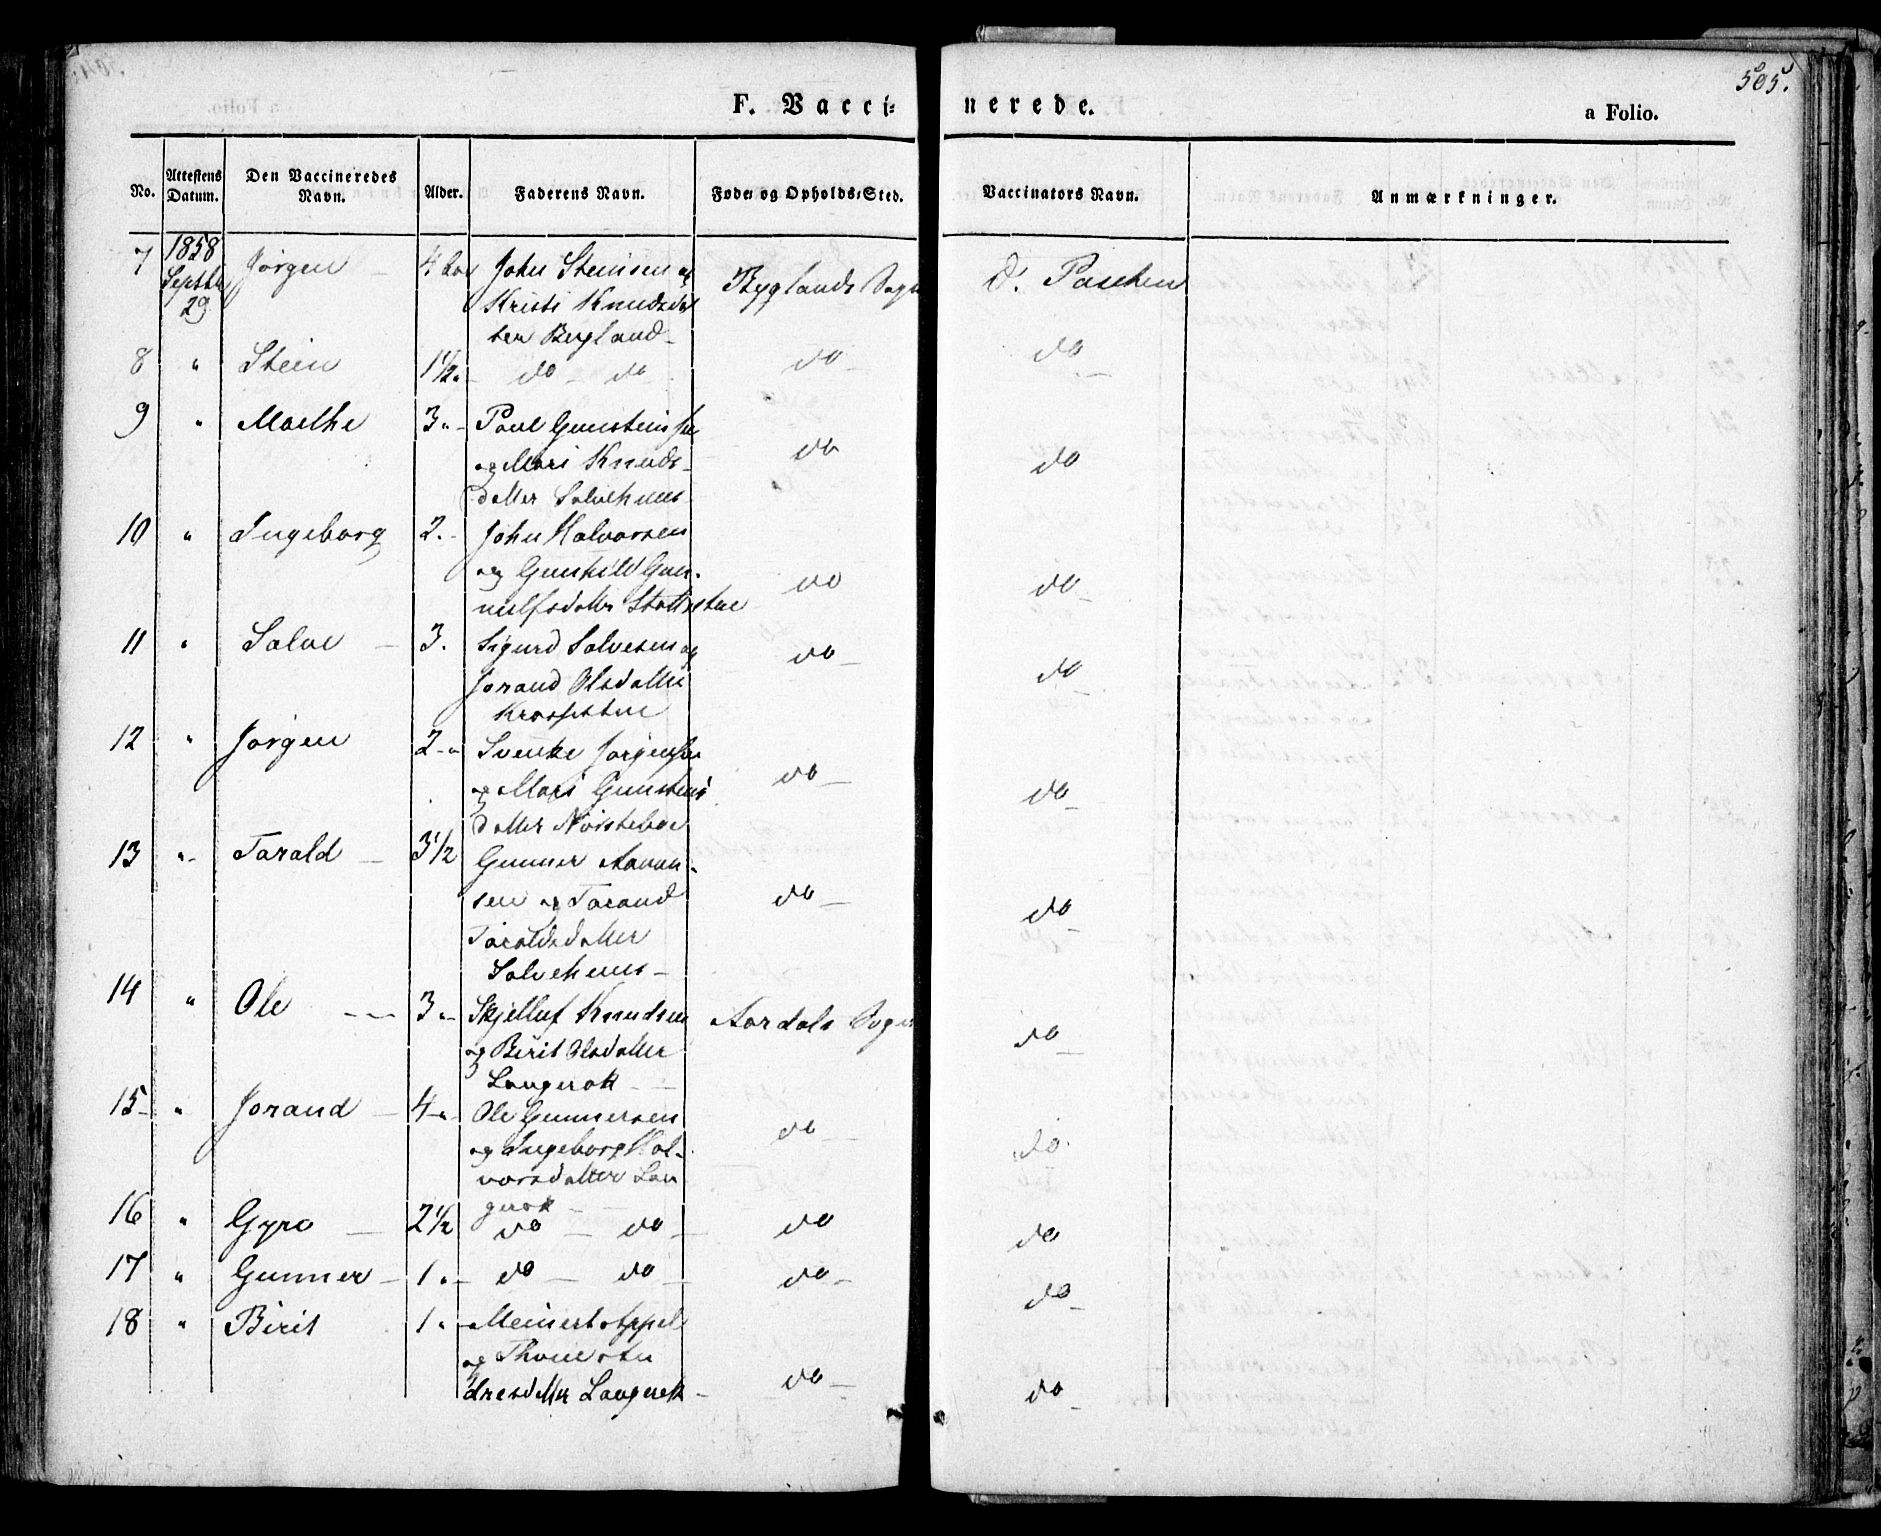 505.
F. Vacci⸗nerede.
a Folio.
No. Attestens Datum. Den Vaccineredes Navn. Alder. Faderens Navn. Føde⸗ og Opholds⸗Sted. Vaccinators Navn. Anmærkninger.
7 1858 Septbr 29 Jørgen 4 John Steinsen og Byglands Sogn d. Paschen
Kristi Knudsdat
ter Bergland
8 " Stein 1½ do do do do
9 " Maelhe 3 Poul Gunsteinsen do do
og Mari Knuds-
datter
10 " Ingeborg 2 John Halvorsen do do
og Gunhild Gun-
nulfsdatter
11 " Salve 3 Sigurd Salvesen og do do
Jorand Olsdatter
12 " Jørgen 2 Svenke Jørgensen do do
og Mari Gunsteins
datter
13 " Tarald 3½ Gunner Aavan- do do
sen og Tarand
Taraldsdatter
14 " Ole 3 Skjelluf Knudsen Aardals Sogn do
og Birit Olsdatter
Langerak
15 " Jorand 4 Ole Gunnersen do do
og Ingeborg Hal-
vorsdatter Lan
gerak
16 " Gyro 2½ do do do do
17 " Gunner 1 do do do do
18 " Birit 1 Meinert Appel do do
og Thone An
dresdatter Langerak